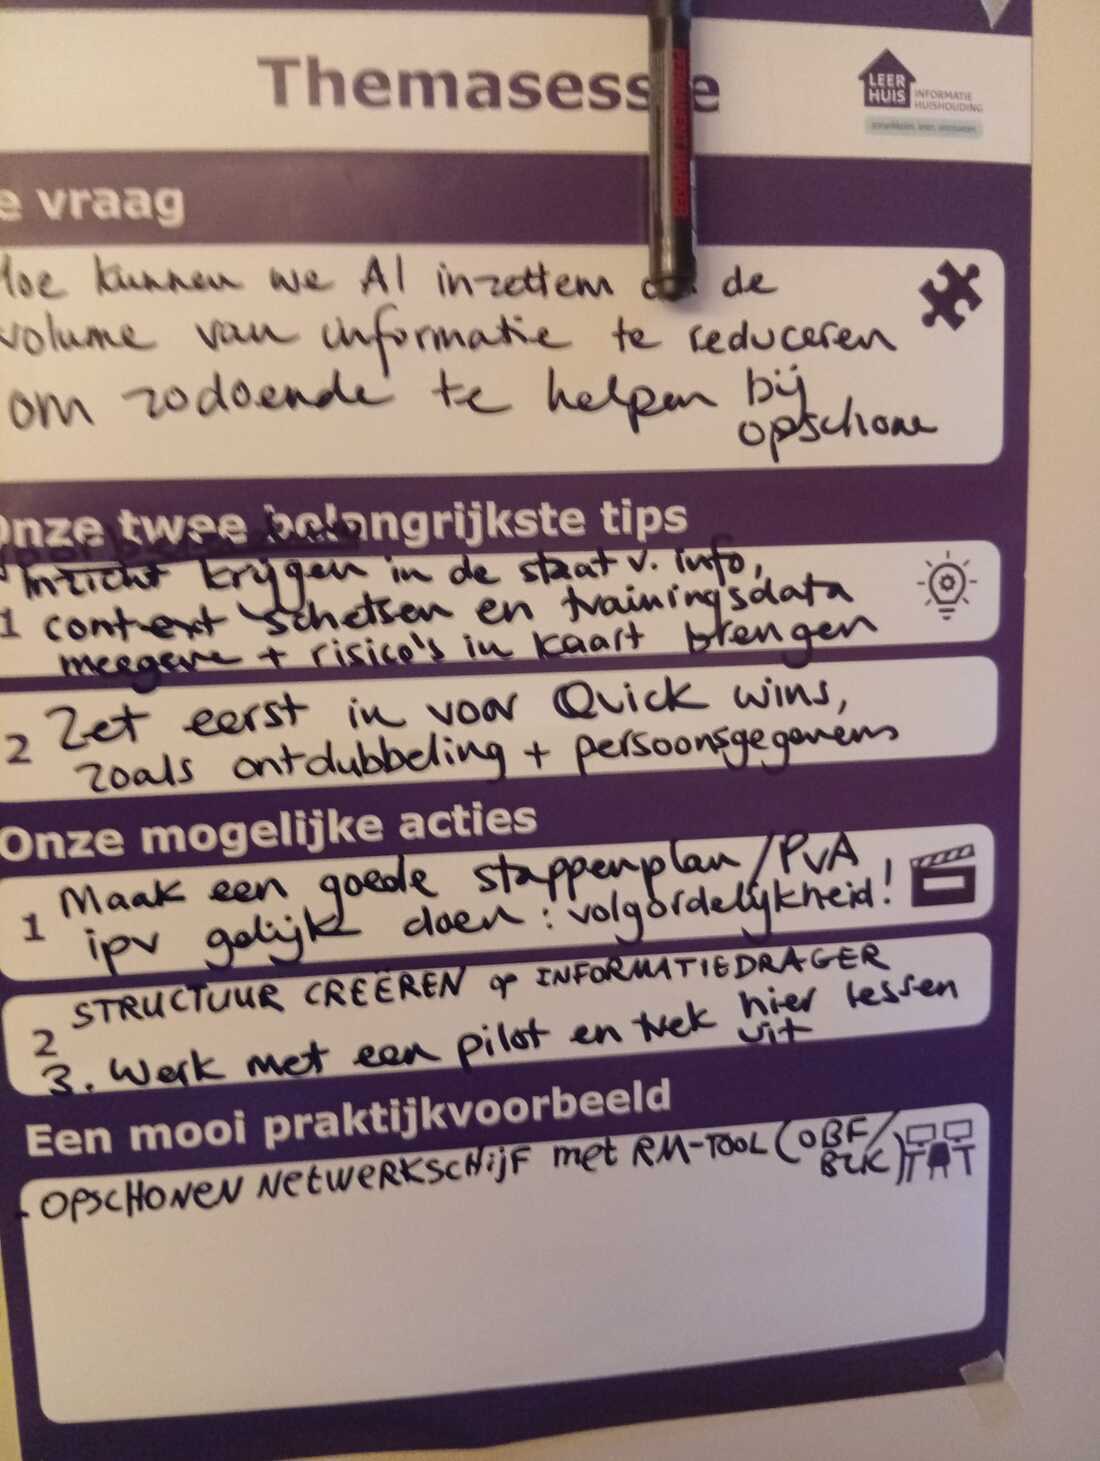 Themasess e
LEER
HUIS
INFORMATIE
HUISHOUDING
e vraag
Hoe kunnen we AI inzetten de
volume van informatie te reduceren
om zodoende te helpen bij
opschone
Onze twee belangrijkste tips
Inzicht krijgen in de staat v. info,
1 context schetsen en trainingsdata
meegeve + risico's in kaart brengen
2 Zet eerst in voor Quick wins,
zoals ontdubbeling + persoonsgegevens
Onze mogelijke acties
1 Maak een goede stappenplan/PvA
ipv gelijk doen: volgordelijkheid!
2 STRUCTUUR CREËREN op INFORMATIEDRAGER
3. Werk met een pilot en trek hier lessen
uit
Een mooi praktijkvoorbeeld
- OPSCHONEN NETWERKSCHIJF met RM-TOOL (OBF/
BZK)